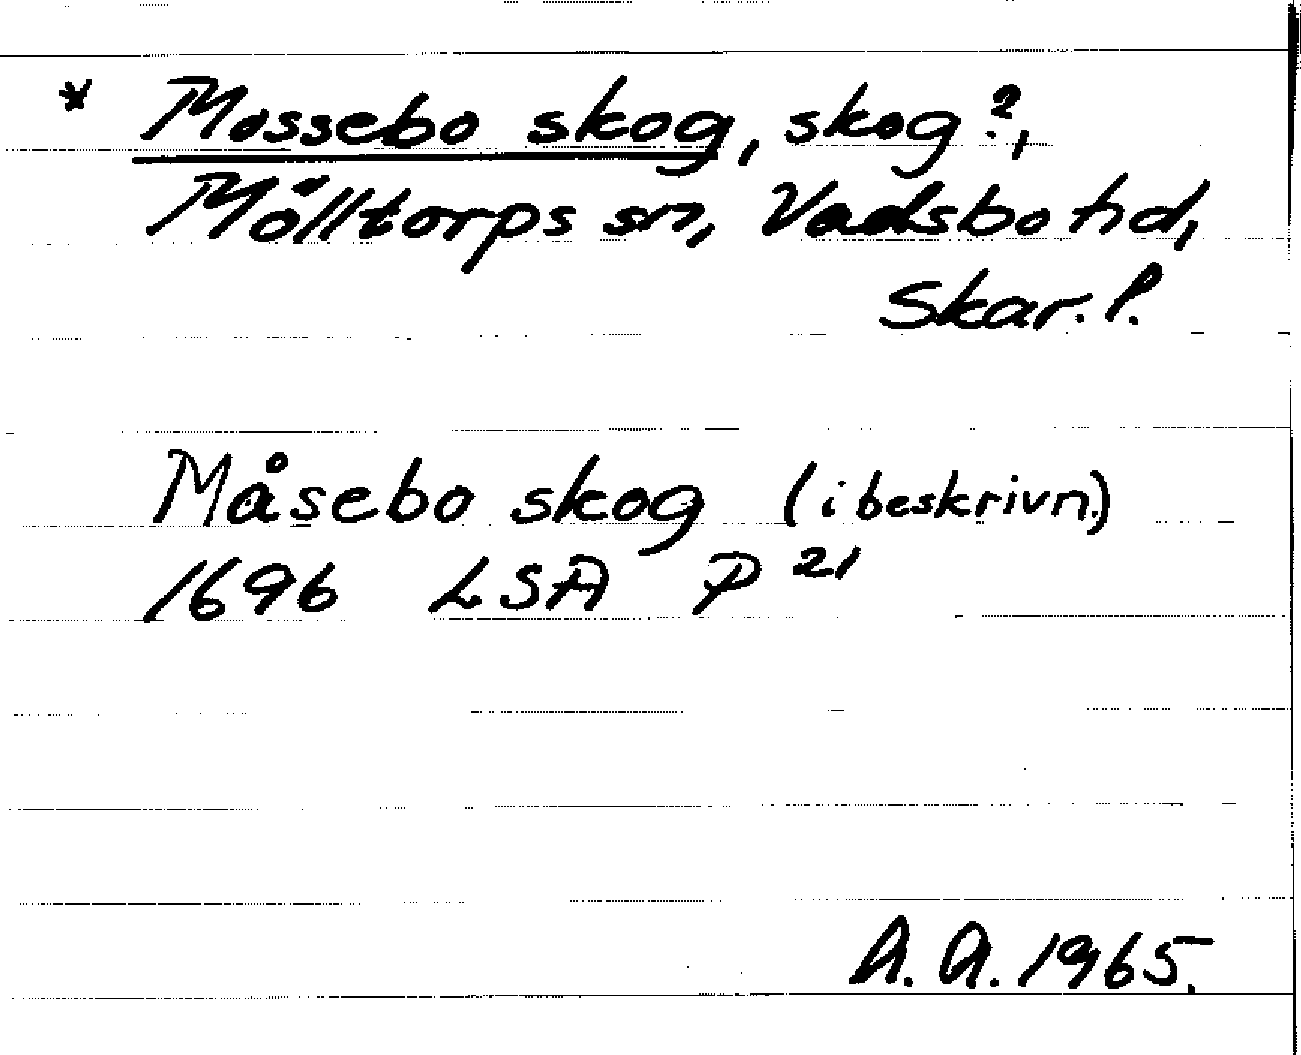 * Mossebo skog, skog?,
Mölltorps sn, Vadsbo hd,
Skar. l.
Måsebo skog (i beskrivn.)
1696 LSA P 21
A. A. 1965.